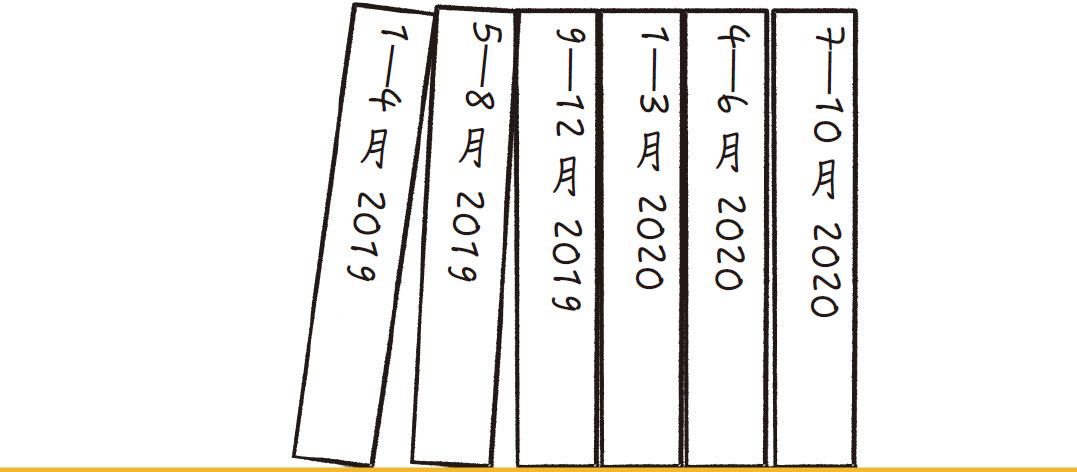 1—4月 2019
5—8月 2019
9—12月 2019
1—3月 2020
4—6月 2020
7—10月 2020